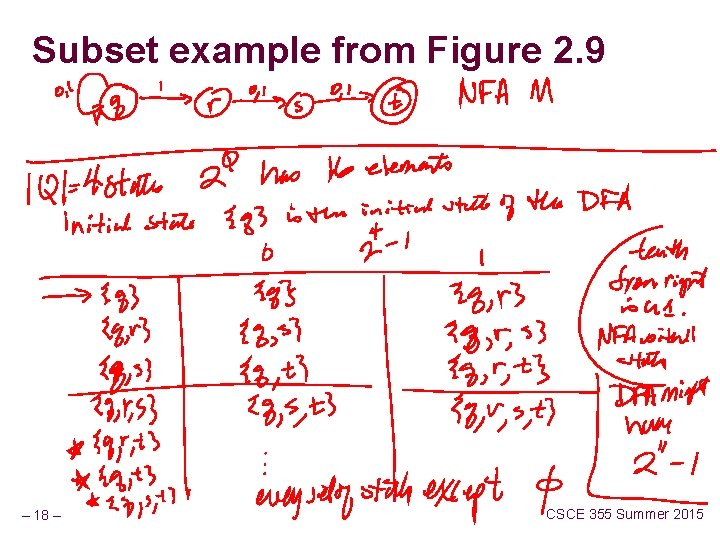 Subset example from Figure 2.9
0,1 q 1 r 0,1 s 0,1 t NFA M
|Q|=4 states 2^Q has 16 elements
initial state {q} is the initial state of the DFA
0 2^4-1 1
→ {q} {q} {q,r}
{q,r} {q,s} {q,r,s}
{q,s} {q,t} {q,r,t}
{q,r,s} {q,s,t} {q,r,s,t}
* {q,r,t}
* {q,t} ⋮
* {q,s,t} every set of states except ϕ
tenth
from right
is a 1.
NFA 11
states
DFA might
have
2^11-1
– 18 –
CSCE 355 Summer 2015